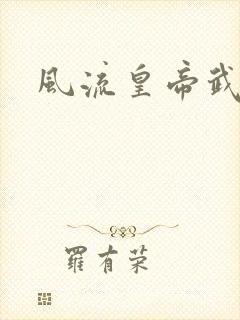 風流皇帝武
羅有荣